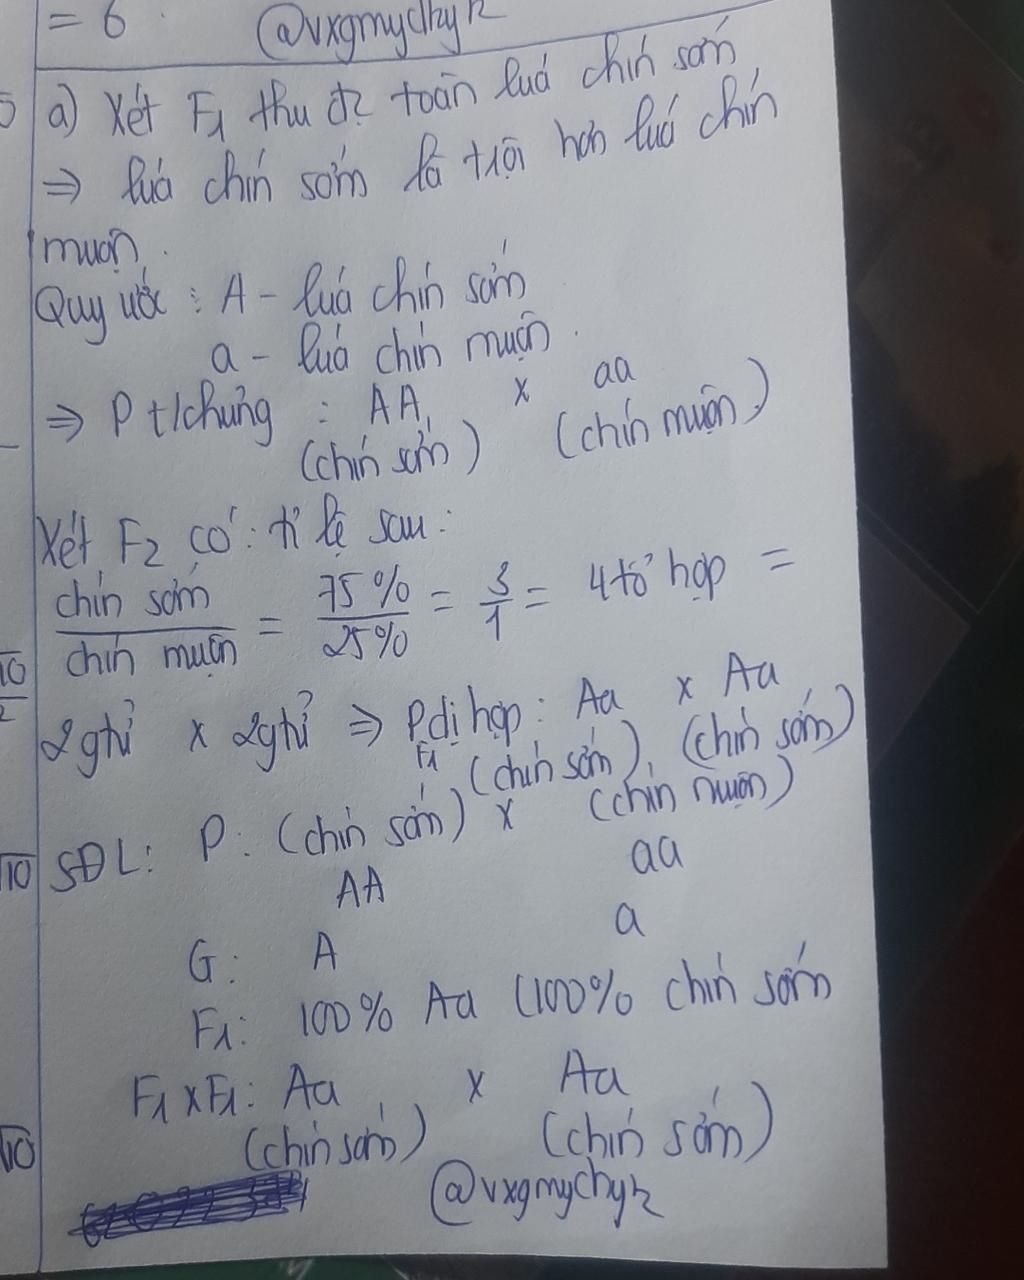 = 6 @vxgmychyk
a) Xét F1 thu đc toàn luá chín sớm
⇒ luá chín sớm là trội hơn luá chín
muộn.
Quy ước : A - luá chín sớm
a - luá chín muộn.
⇒ P t/chủng : AA x aa
(chín sớm) (chín muộn)
Xét F2 có: tỉ lệ sau:
chín sớm / chín muộn = 75% / 25% = 3/1 = 4 tổ hợp =
2 gtử x 2 gtử ⇒ P dị hợp: Aa x Aa
F1 (chín sớm), (chín sớm)
SĐL: P: (chín sớm) x (chín muộn)
AA aa
G: A a
F1: 100% Aa (100% chín sớm
F1 x F1: Aa x Aa
(chín sớm) (chín sớm)
@vxgmychyk
10
2
√10
√10